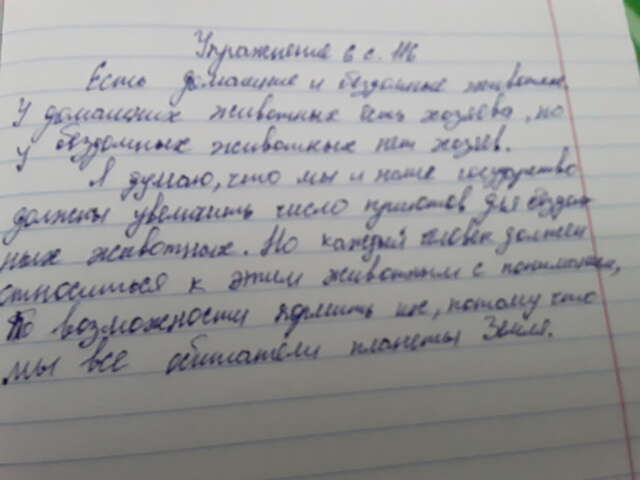 Упражнение 6 с. 116
Есть домашние и бездомные животные.
У домашних животных есть хозяева, но
у бездомных животных нет хозяев.
Я думаю, что мы и наше государство
должны увеличить число приютов для бездом
ных животных. Но каждый человек должен
относиться к этим животным с пониманием,
по возможности кормить их, потому что
мы все обитатели планеты Земля.